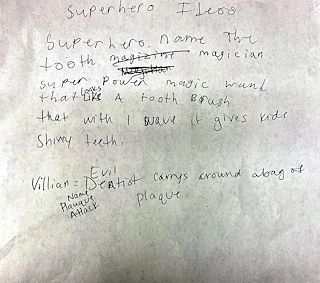 Superhero Ideas
Superhero. name The
tooth magician
super power magic wand
that looks like A tooth brush
that with 1 wave it gives kids
Shiny teeth.
Villian = Evil Dentist carrys around a bag of
plaque
Name
Plauque
Attack